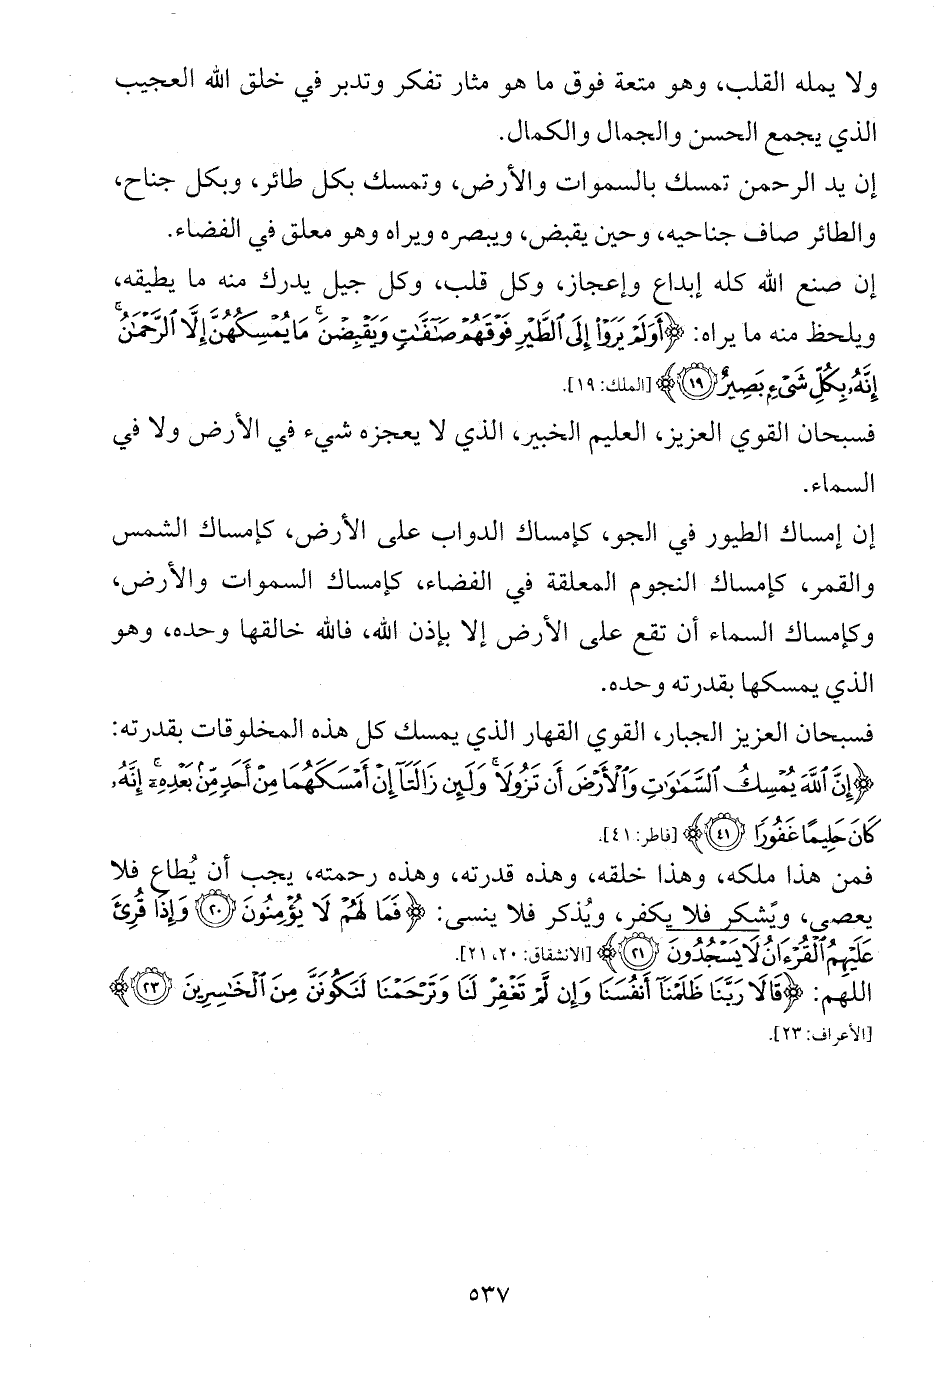 ولا يمله القلب، وهو متعة فوق ما هو مثار تفكر وتدبر في خلق الله العجيب
الذي يجمع الحسن والجمال والكمال.
إن يد الرحمن تمسك بالسموات والأرض، وتمسك بكل طائر، وبكل جناح،
والطائر صاف جناحيه، وحين يقبض، ويبصره ويراه وهو معلق في الفضاء.
إن صنع الله كله إبداع وإعجاز، وكل قلب، وكل جيل يدرك منه ما يطيقه،
ويلحظ منه ما يراه: ﴿أَوَلَمْ يَرَوْا۟ إِلَى ٱلطَّيْرِ فَوْقَهُمْ صَـٰٓفَّـٰتٍ وَيَقْبِضْنَ ۚ مَا يُمْسِكُهُنَّ إِلَّا ٱلرَّحْمَـٰنُ ۚ
إِنَّهُۥ بِكُلِّ شَىْءٍۭ بَصِيرٌ ﴿١٩﴾﴾ [الملك: ١٩].
فسبحان القوي العزيز، العليم الخبير، الذي لا يعجزه شيء في الأرض ولا في
السماء.
إن إمساك الطيور في الجو، كإمساك الدواب على الأرض، كإمساك الشمس
والقمر، كإمساك النجوم المعلقة في الفضاء، كإمساك السموات والأرض،
وكإمساك السماء أن تقع على الأرض إلا بإذن الله، فالله خالقها وحده، وهو
الذي يمسكها بقدرته وحده.
فسبحان العزيز الجبار، القوي القهار الذي يمسك كل هذه المخلوقات بقدرته:
﴿إِنَّ ٱللَّهَ يُمْسِكُ ٱلسَّمَـٰوَٰتِ وَٱلْأَرْضَ أَن تَزُولَا ۚ وَلَئِن زَالَتَآ إِنْ أَمْسَكَهُمَا مِنْ أَحَدٍ مِّنۢ بَعْدِهِۦٓ ۚ إِنَّهُۥ
كَانَ حَلِيمًا غَفُورًا ﴿٤١﴾﴾ [فاطر: ٤١].
فمن هذا ملكه، وهذا خلقه، وهذه قدرته، وهذه رحمته، يجب أن يُطاع فلا
يعصى، ويُشكر فلا يكفر، ويُذكر فلا ينسى: ﴿فَمَا لَهُمْ لَا يُؤْمِنُونَ ﴿٢٠﴾ وَإِذَا قُرِئَ
عَلَيْهِمُ ٱلْقُرْءَانُ لَا يَسْجُدُونَ ﴿٢١﴾﴾ [الانشقاق: ٢٠، ٢١].
اللهم: ﴿قَالَا رَبَّنَا ظَلَمْنَآ أَنفُسَنَا وَإِن لَّمْ تَغْفِرْ لَنَا وَتَرْحَمْنَا لَنَكُونَنَّ مِنَ ٱلْخَـٰسِرِينَ ﴿٢٣﴾﴾
[الأعراف: ٢٣].
٥٣٧